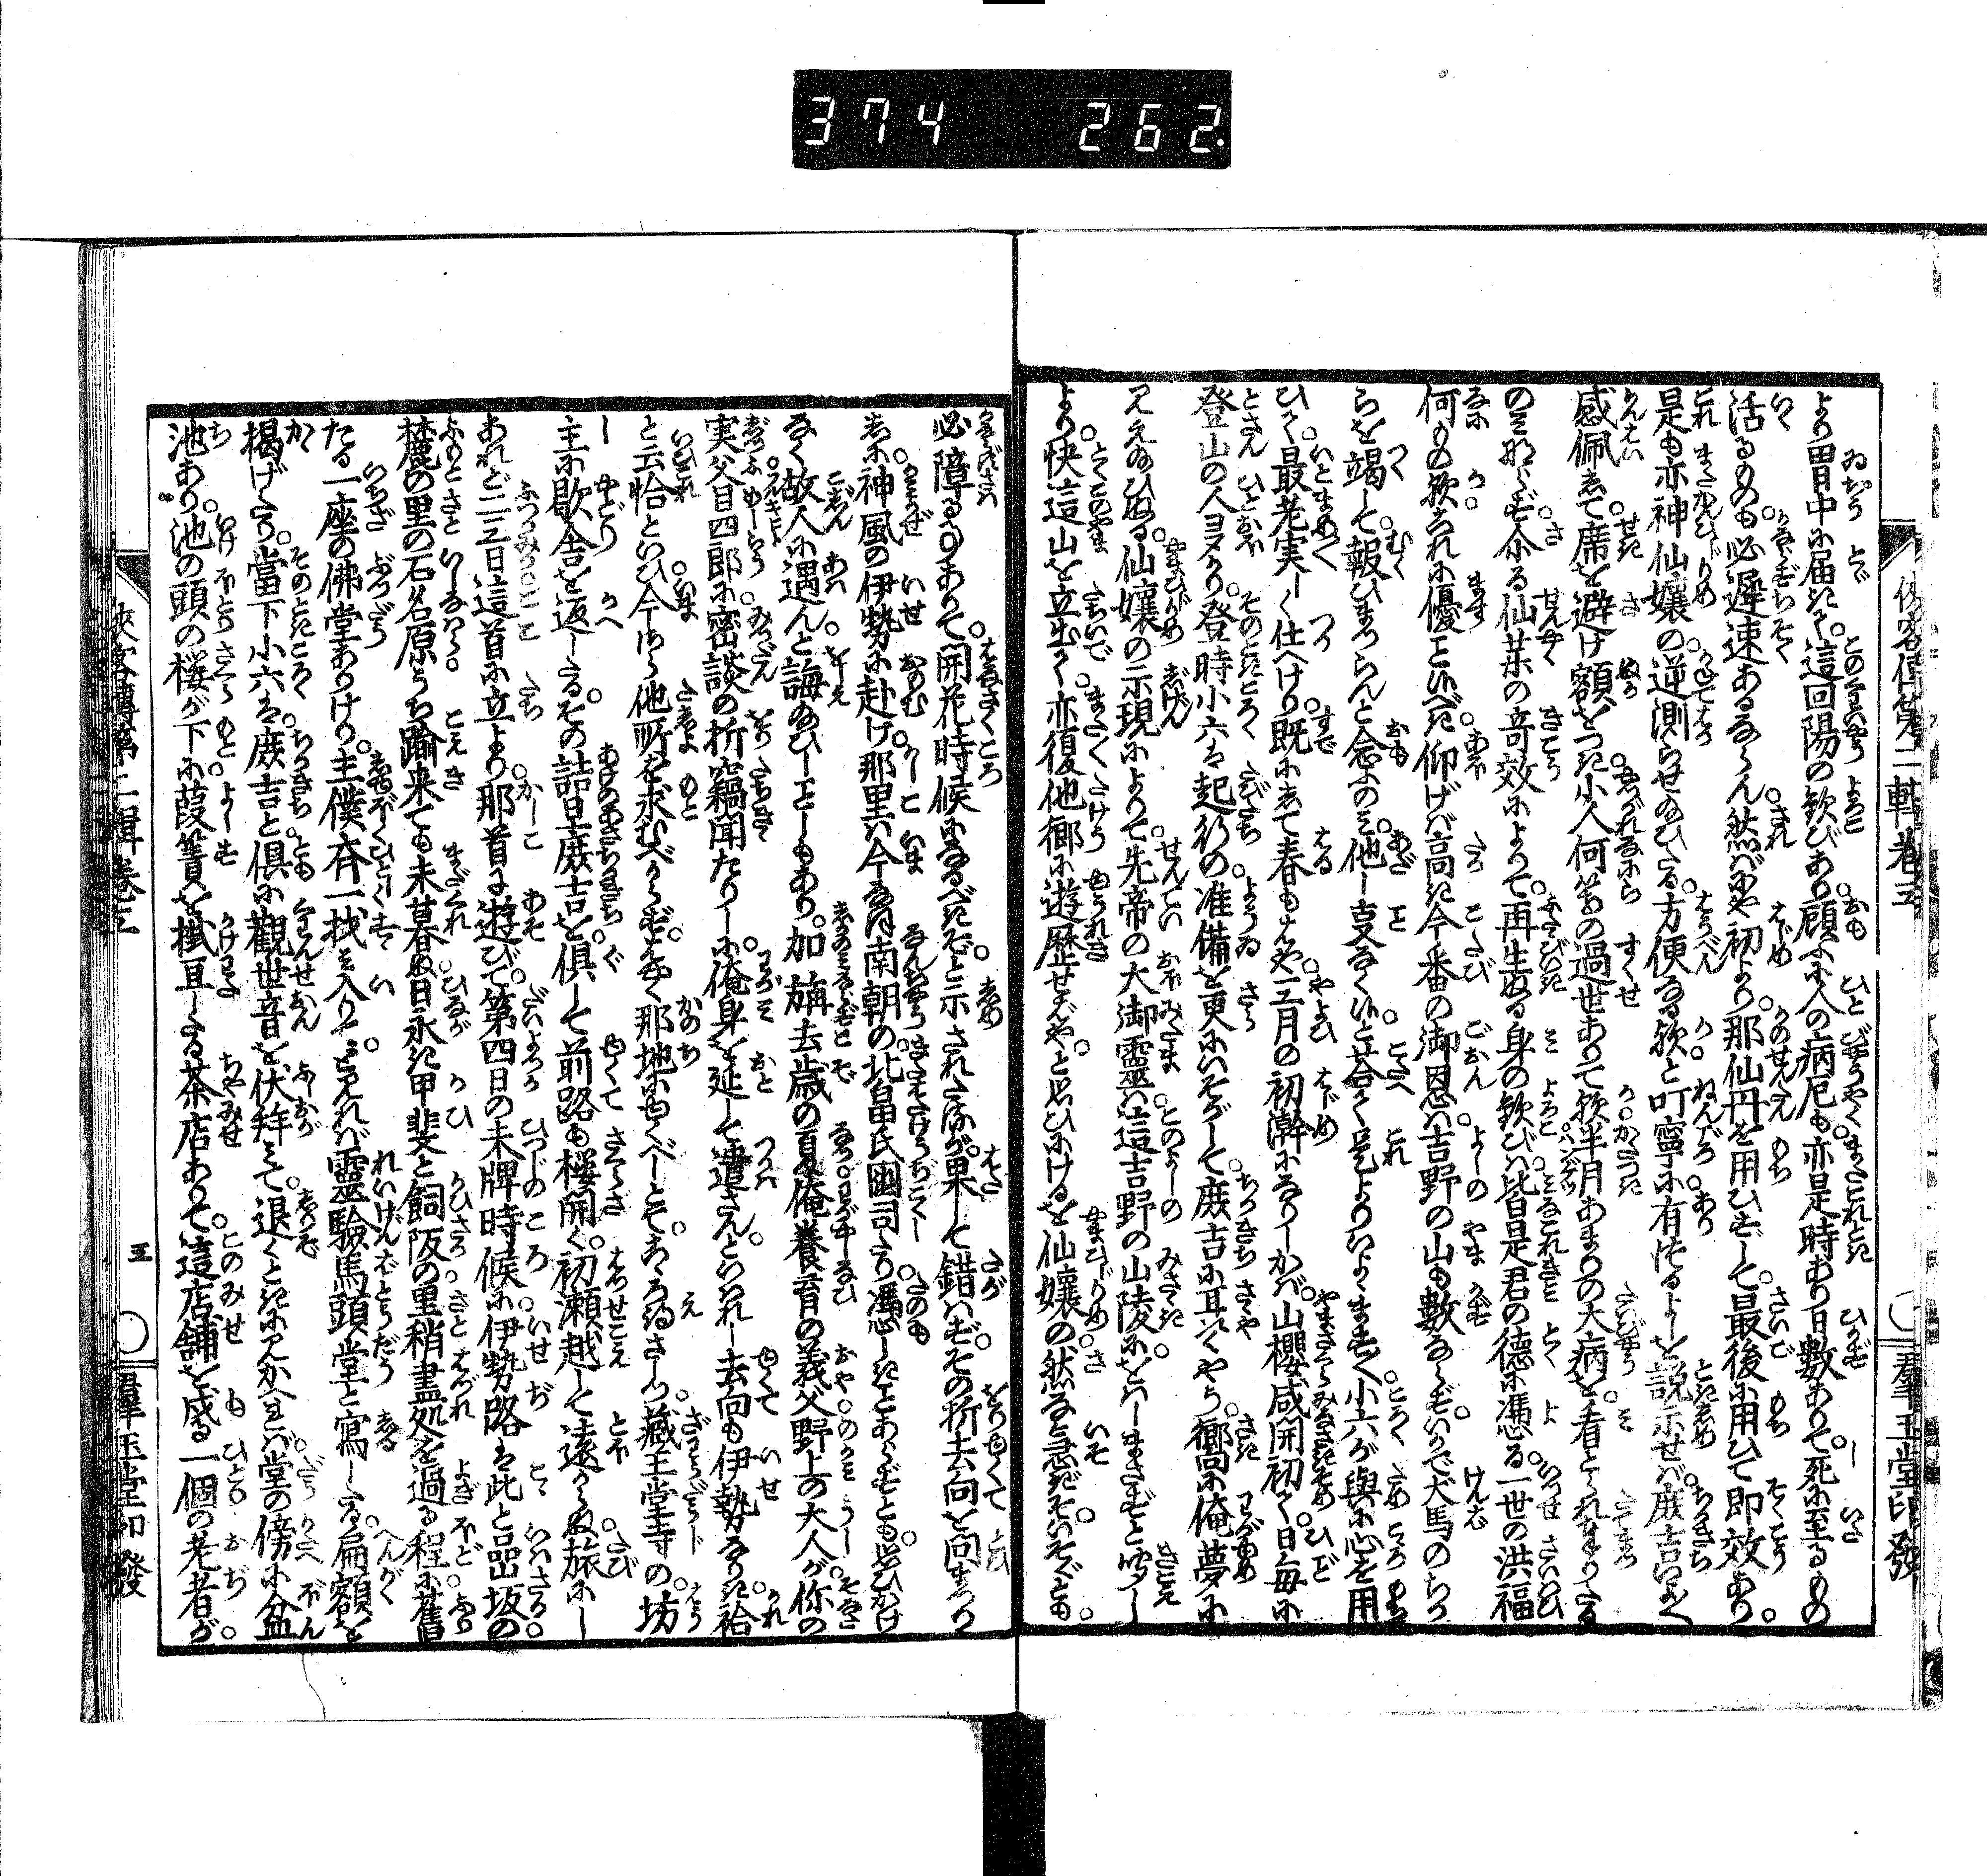 374 262.
俠客傳第二輯卷五
羣玉堂印發
より胃中に届きて這回陽の歓びあり顧ふに人の病厄も亦是時あり日數ありて死に至るもの
活るものも必遅速あるならん然ばにや初より那仙丹を用ひずして最後に用ひて即効あり
是も亦神仙孃の逆測らせ給ひたる方便なる欤と叮寧に有けるよしを説示せば廐吉は
感佩して席を避け額をつき小人何等の過世ありて欤半月あまりの大病を看とられまゐらする
のみならず介る仙菜の奇效によりて再生ぬる身の歓びは皆是君の德に馮る一世の洪福
何もの欤これに優すべき仰げば高き今番の御恩は吉野の山も數ならずいかで犬馬のちから
らを竭して報ひまつらんと念ふのみ他事なくいと荅て是よりいよゝますく小六が與に心を用
ひて最老実しく仕へけり既にして春もはや三月の初澣になりしかば山櫻咲開初て日毎に
登山の人ヨタかり登時小六は起行の准備を更にいそがして廐吉に耳語くやう嚮に俺夢に
見え給ひぬる仙孃の示現によりて先帝の大御靈は這吉野の山陵にをはしまさずと聞し
より快這山を立出て亦復他鄉に遊歴せばやと思ひにけるを仙孃の然な急ぎそいそぐとも
必障るゝありて開花時候になるべきぞと示されたるが果して錯はずその折去向を問まつり
しに神風の伊勢に赴け那里は今なほ南朝の北畠氏國司たり馮しきことあらずとも思ひかけ
なく故人に遇んと誨給ひしこともあり加旃去歲の夏俺養育の義父野上の大人が你の
実父目四郎に密談の折竊聞たりしに俺身を延して遣さんといはれし去向も伊勢なりき袷
と云恰といひ今はゝ他所を求むべからずよく那地にゆくべしとてこゝろ得さしつ藏王堂寺の坊
主に歇舎を返したるその詰日廐吉を俱して前路も櫻開く初瀨越して遠からぬ旅にし
あれど二三日這首に立より那首に遊びて第四日の未牌時候に伊勢路は此と嵒坂の
麓の里の石名原うち踰来ても未暮ぬ日永き甲斐と飼阪の里稍盡処を過る程に舊
たる一座の佛堂ありけり主僕齊一找み入りつゝ見れば靈驗馬頭堂と寫したる扁額を
揭げたり當下小六は廐吉と俱に觀世音を伏拜みて退くときに見かへれば堂の傍に盆
池あり池の頭の櫻が下に葭簀を掛亘したる茶店ありて這店舗を戍る一個の老者が
俠客傳第二輯卷五
五
羣玉堂印發